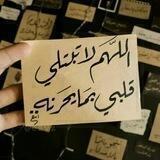 اللهم لا تبتلي
قلبي بما يحزنه